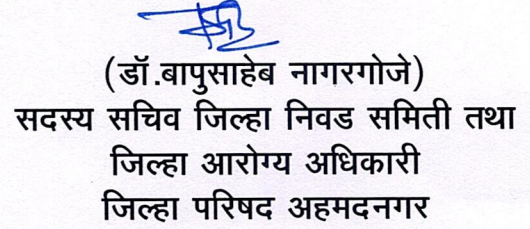 (डॉ.बापुसाहेब नागरगोजे)
सदस्य सचिव जिल्हा निवड समिती तथा
जिल्हा आरोग्य अधिकारी
जिल्हा परिषद अहमदनगर